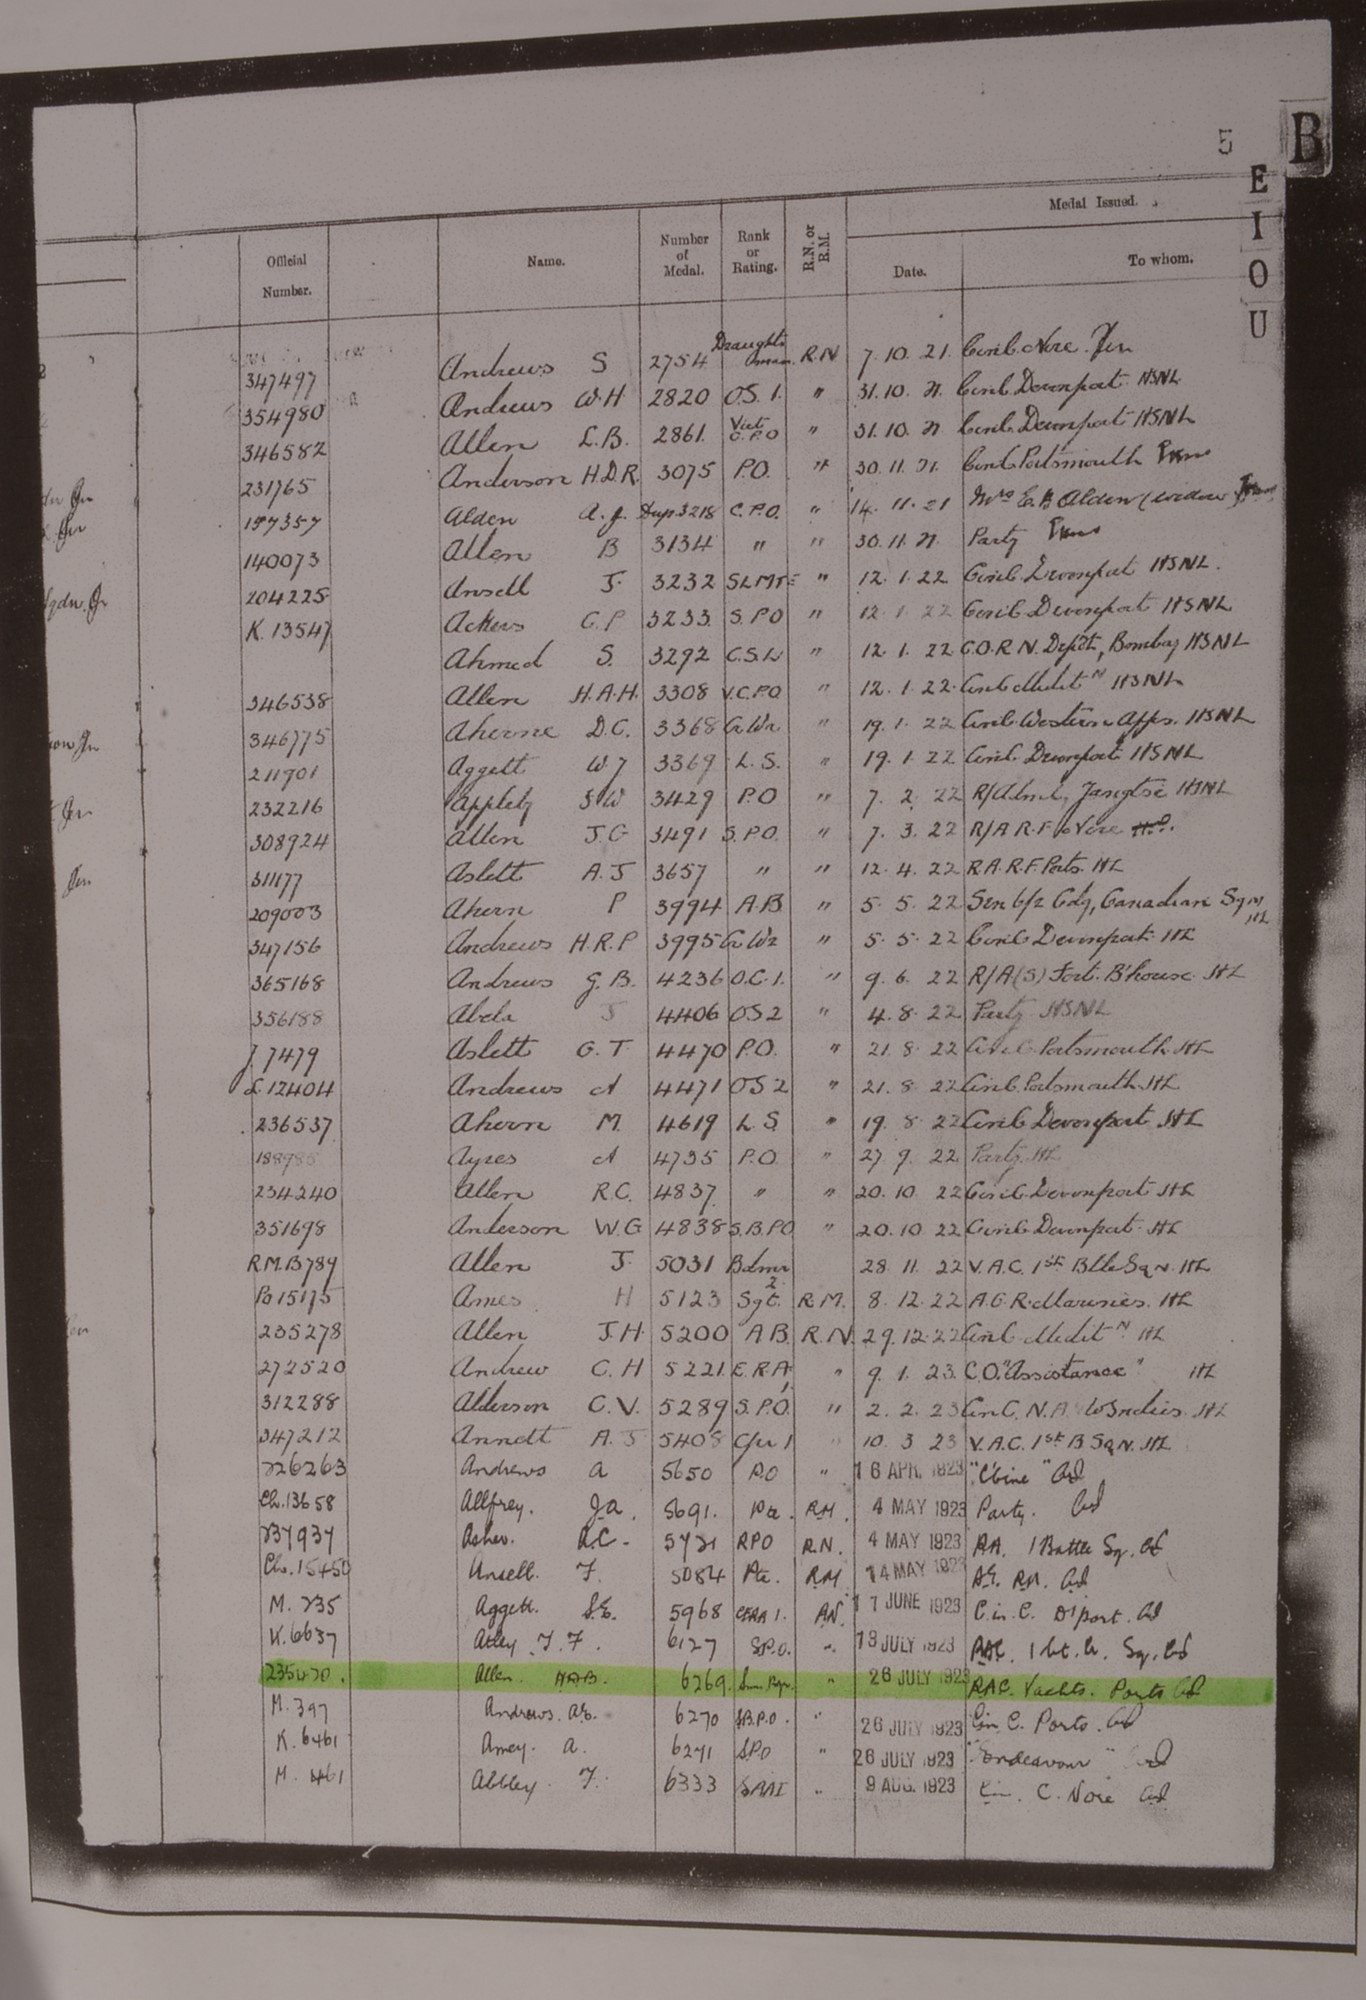 5 B
E
I
O
U
Medal Issued.
Official Number. Name. Number of Medal. Rank or Rating. R.N. or R.M. Date. To whom.
Andrews S 2754 Draughtsman R.N 7.10.21. CinC. Nore.
347497 Andrews W.H 2820 O.S. 1. " 31.10.21. CinC. Devonport HSNL
354980 Allen L.B. 2861. Vict C.P.O " 31.10.21 CinC. Devonport HSNL
346582 Anderson H.D.R. 3075 P.O. " 30.11.21. CinC Portsmouth
231765 Alden A.J. Dup 3218 C.P.O. " 14.11.21 Mrs E. Alden (widow)
157357 Allen B 3134 " " 30.11.21. Party
140073 Ansell J. 3232 SLMTE " 12.1.22. CinC. Devonport HSNL.
204225 Ackers C.P 3233. S.P.O " 12.1.22 CinC Devonport HSNL
K.13547 Ahmed S. 3292 " 12.1.22 C.O.R.N. Depôt, Bombay HSNL
Allen H.A.H. 3308 V.C.P.O " 12.1.22. CinC Medit N HSNL
346538 Aherne D.C. 3368 " 19.1.22 CinC Western Appr. HSNL
346775 Aggett W J 3369 L.S. " 19.1.22 CinC. Devonport HSNL
211901 Appleby S W 3429 P.O " 7.2.22 R/Adml, Yangtse HSNL
232216 Allen J.G 3491 S.P.O. " 7.3.22 R/A R.F. Nore
308924 Aslett A.J 3657 " " 12.4.22 R.A.R.F. Ports. HL
311177 Ahern P 3994 A.B. " 5.5.22 Canadian
209003 Andrews H.R.P 3995 " 5.5.22 CinC Devonport HL
347156 Andrews G.B. 4236 O.C.1. " 9.6.22 R/A(S) Fort. B'house HL
365168 Abela J 4406 OS2 " 4.8.22 Party HSNL
356188 Aslett G.T. 4470 P.O. " 21.8.22 CinC. Portsmouth HL
J.7479 Andrews A 4471 OS2 " 21.8.22 CinC. Portsmouth HL
L.12404 Ahern M. 4619 L.S. " 19.8.22 CinC Devonport HL
236537 Ayres A 4735 P.O. " 27.9.22 Party HL
Allen R.C. 4837. " " 20.10.22 CinC. Devonport HL
234240 Anderson W.G 4838 S.B.P.O " 20.10.22 CinC Devonport HL
351698 Allen J. 5031 Bdmr 2 28.11.22 V.A.C. 1st Btle Sqn. HL
R.M.B789 Ames H 5123 Sgt. R.M. 8.12.22 A.G.R. Marines. HL
Po 15175 Allen J.H. 5200 A.B. R.N. 29.12.22 CinC Medit N HL
235278 Andrew C.H 5221 E.R.A. 1 " 9.1.23. C.O. "Assistance" HL
272520 Alderson C.V. 5289 S.P.O. " 2.2.23 CinC, N.A. W Indies. HL
312288 Annett A.J 5408 " 10.3.23 V.A.C. 1st B Sqn. HL
347212 Andrews A 5650 P.O " 16 APR. 1923
226263 Allfrey. J.A. 5691. Pte. R.M. 4 MAY 1923 Party.
Ch.13658 Asher. A.C. 5721 RPO R.N. 4 MAY 1923 RA. 1 Battle Sq.
237937 Ansell. F. 5084 Pte. R.M 14 MAY 1923 A.G. R.M.
Ch.15450 Aggett. S.E. 5968 CERA 1. R.N. 17 JUNE 1923 C. in. C. D'port.
M.235 Atley F.F. 6127 S.P.O. " 13 JULY 1923
K.6637 Allen. H.A.B. 6269. " 26 JULY 1923 RAC. Yachts. Ports
235470. Andrews. 6270 S.B.P.O. " 26 JULY 1923 Cin. C. Ports.
M.397 Amey. A. 6271 S.P.O " 26 JULY 1923 "Endeavour"
K.6461 Abbley. F. 6333 " 9 AUG. 1923 Cin. C. Nore
M.461